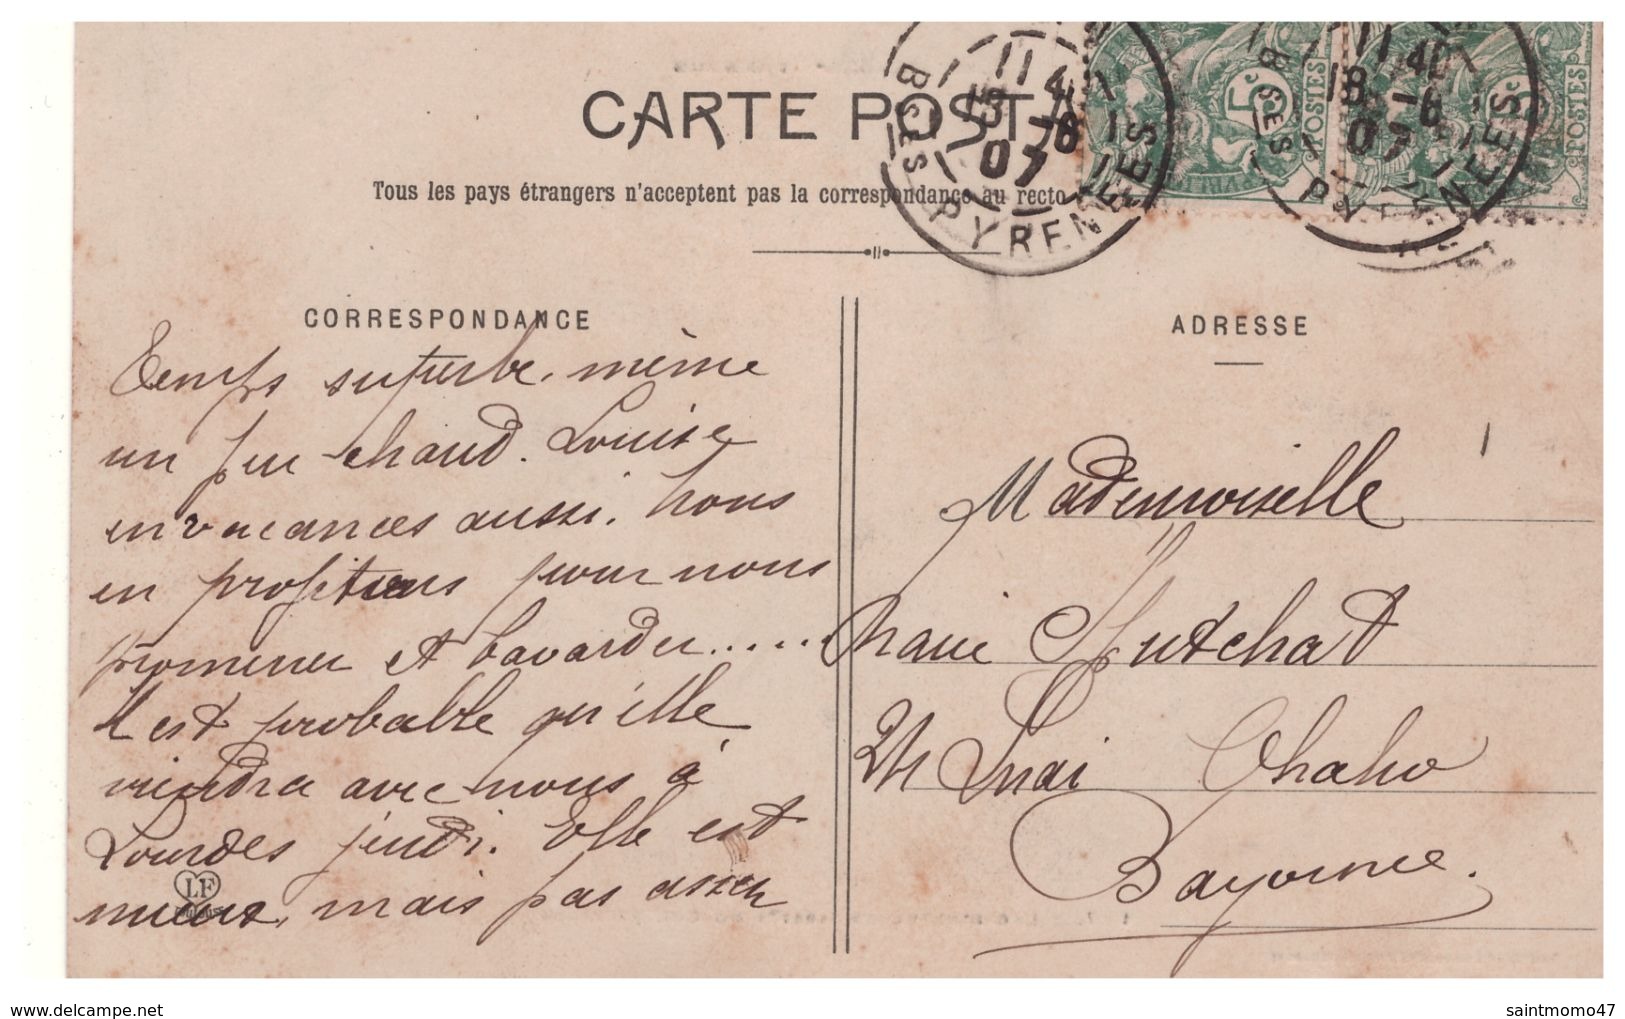 CARTE POSTA
Tous les pays étrangers n'acceptent pas la correspondance au recto
11 40
18 -6
07
Bses PYRENEES
5c
POSTES
11 40
18 -6
07
Bses PYRENEES
5c
POSTES
CORRESPONDANCE
Temps superbe, même
un peu chaud. Louise
en vacances aussi. Nous
en profitons pour nous
promener et bavarder.....
Il est probable qu'elle
viendra avec nous à
Lourdes jeudi. Elle est
mieux, mais pas assez
LF
ADRESSE
Mademoiselle
Marie Hutchat
24 Quai Chaho
Bayonne.
delcampe.net
saintmomo47